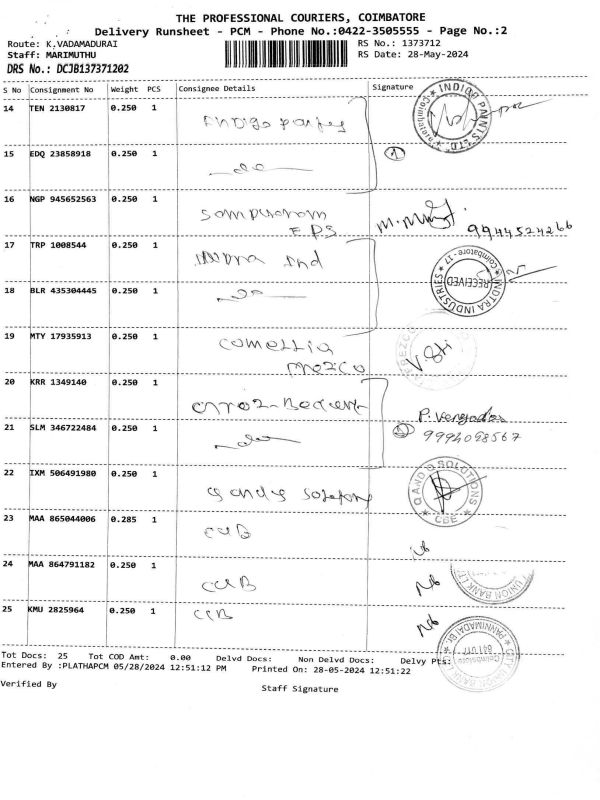 THE PROFESSIONAL COURIERS, COIMBATORE
Delivery Runsheet - PCM - Phone No.:0422-3505555 - Page No.:2
Route: K.VADAMADURAI RS No.: 1373712
Staff: MARIMUTHU RS Date: 28-May-2024
DRS No.: DCJB137371202
S No Consignment No Weight PCS Consignee Details Signature
14 TEN 2130817 0.250 1
INDIGO PAINTS LTD
15 EDQ 23858918 0.250 1
1
16 NGP 945652563 0.250 1
EPS
9944524266
17 TRP 1008544 0.250 1 Ind
18 BLR 435304445 0.250 1
INDTRA INDUSTRIES
RECEIVED
Coimbatore - 17
19 MTY 17935913 0.250 1
20 KRR 1349140 0.250 1
21 SLM 346722484 0.250 1
9994098567
22 IXM 506491980 0.250 1
Q AND Q SOLUTIONS
CBE
23 MAA 865044006 0.285 1 CUB
24 MAA 864791182 0.250 1 CUB
25 KMU 2825964 0.250 1 CUB
Tot Docs: 25 Tot COD Amt: 0.00 Delvd Docs: Non Delvd Docs: Delvy Pts:
Entered By :PLATHAPCM 05/28/2024 12:51:12 PM Printed On: 28-05-2024 12:51:22
Verified By
Staff Signature